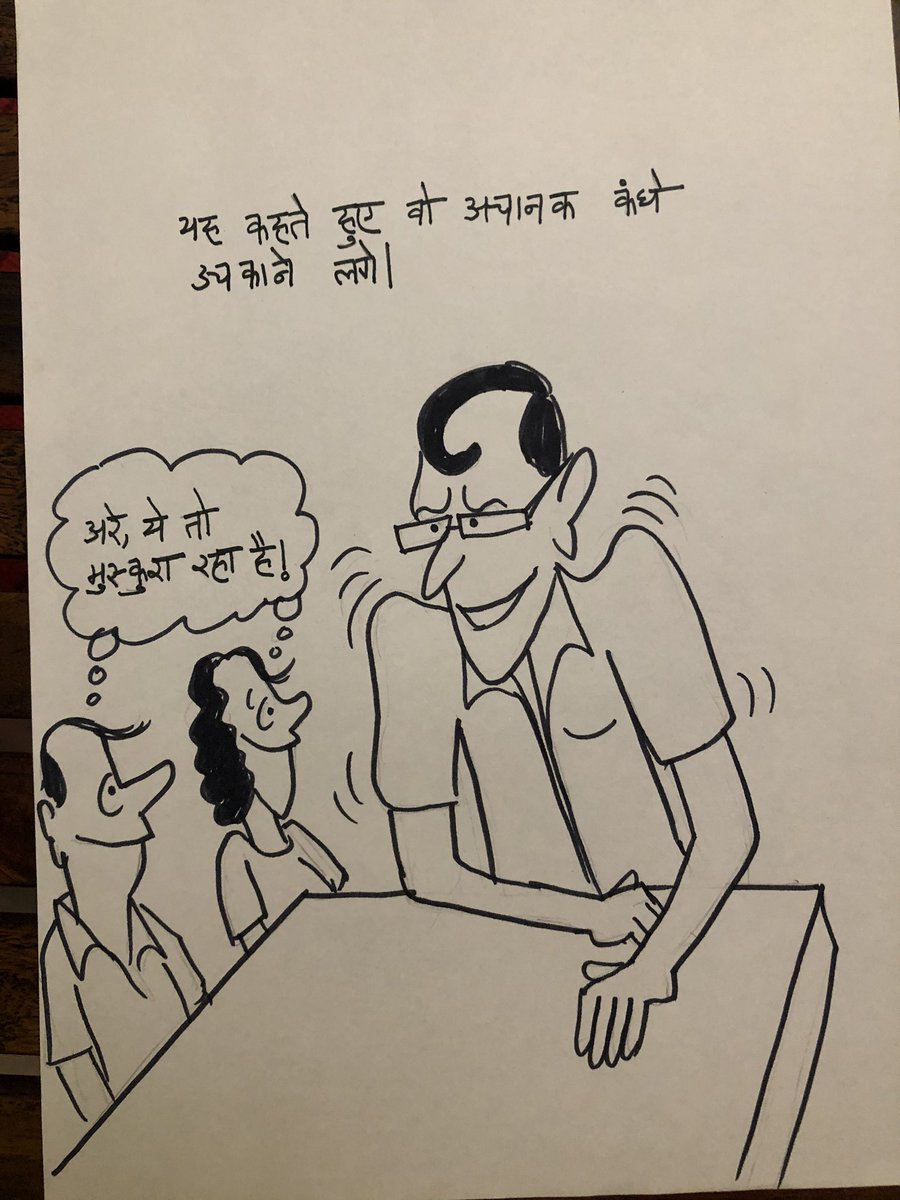 यह कहते हुए वो अचानक कंधे
उचकाने लगे।
अरे, ये तो
मुस्कुरा रहा है!